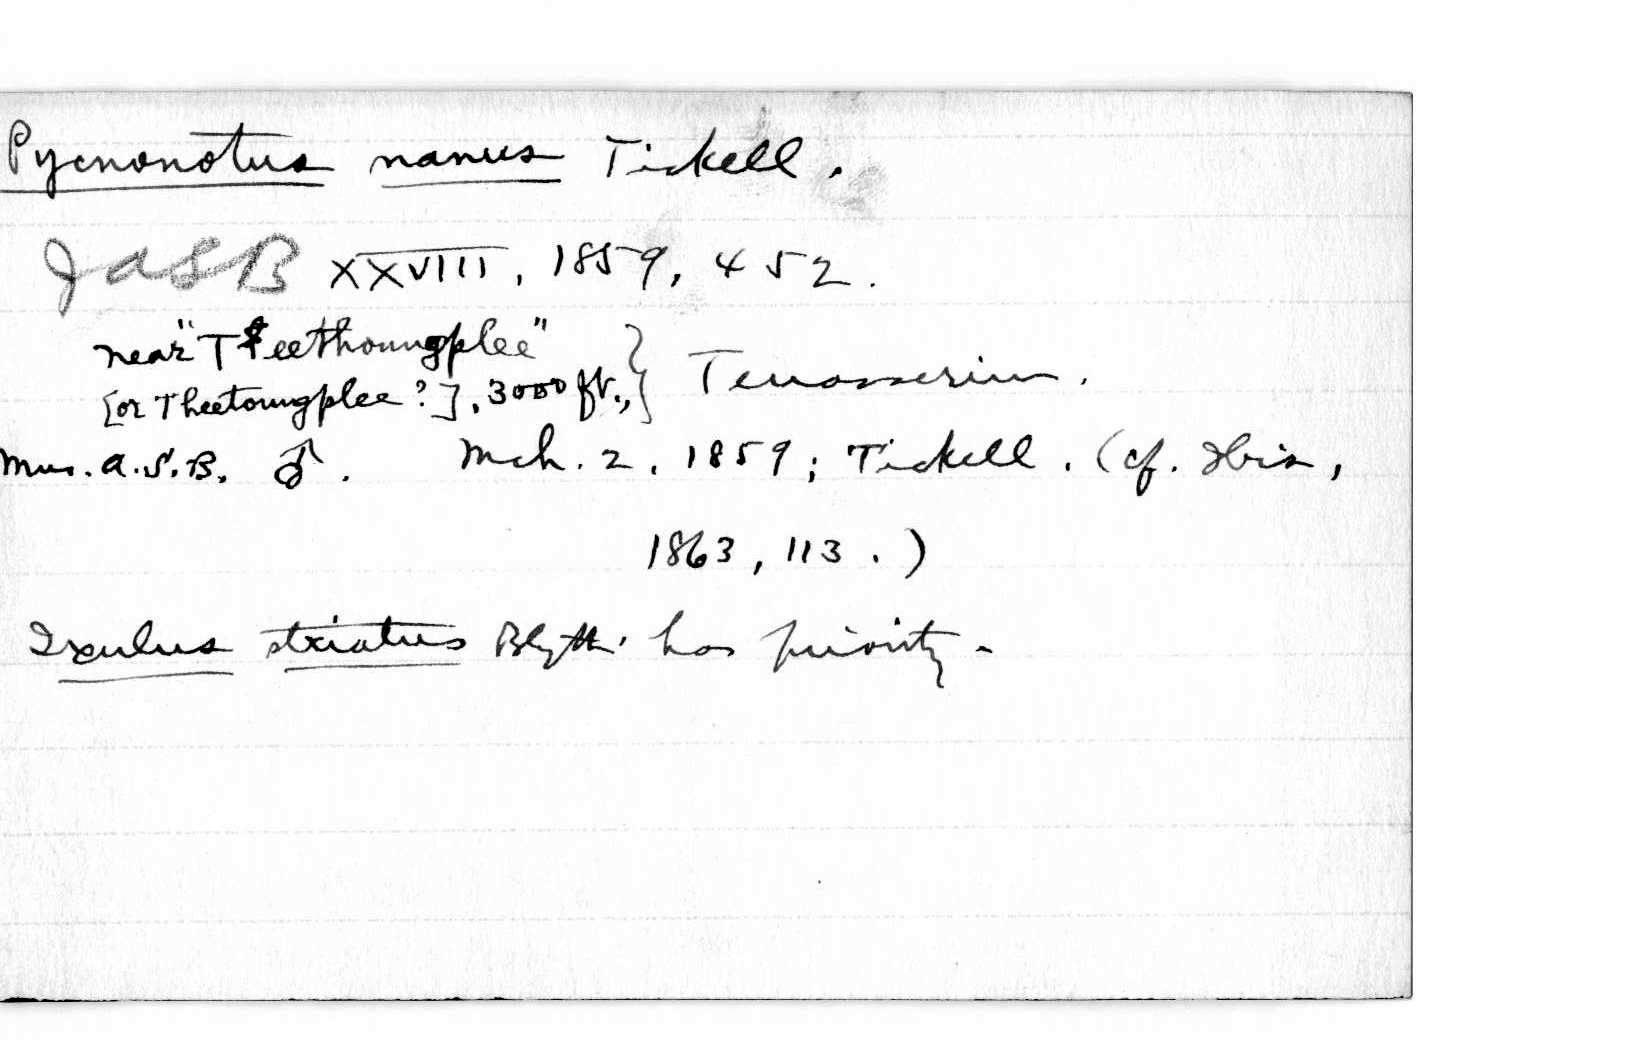 Pycnonotus nanus Tickell.
JASB XXVIII, 1859, 452.
near "Teethoungplee"
[or Theetoungplee?], 3000 ft., } Tenasserim.
Mus. A.S.B. ♂. Mch. 2, 1859; Tickell. (cf. Ibis,
1863, 113.)
Ixulus striatus Blyth has priority.